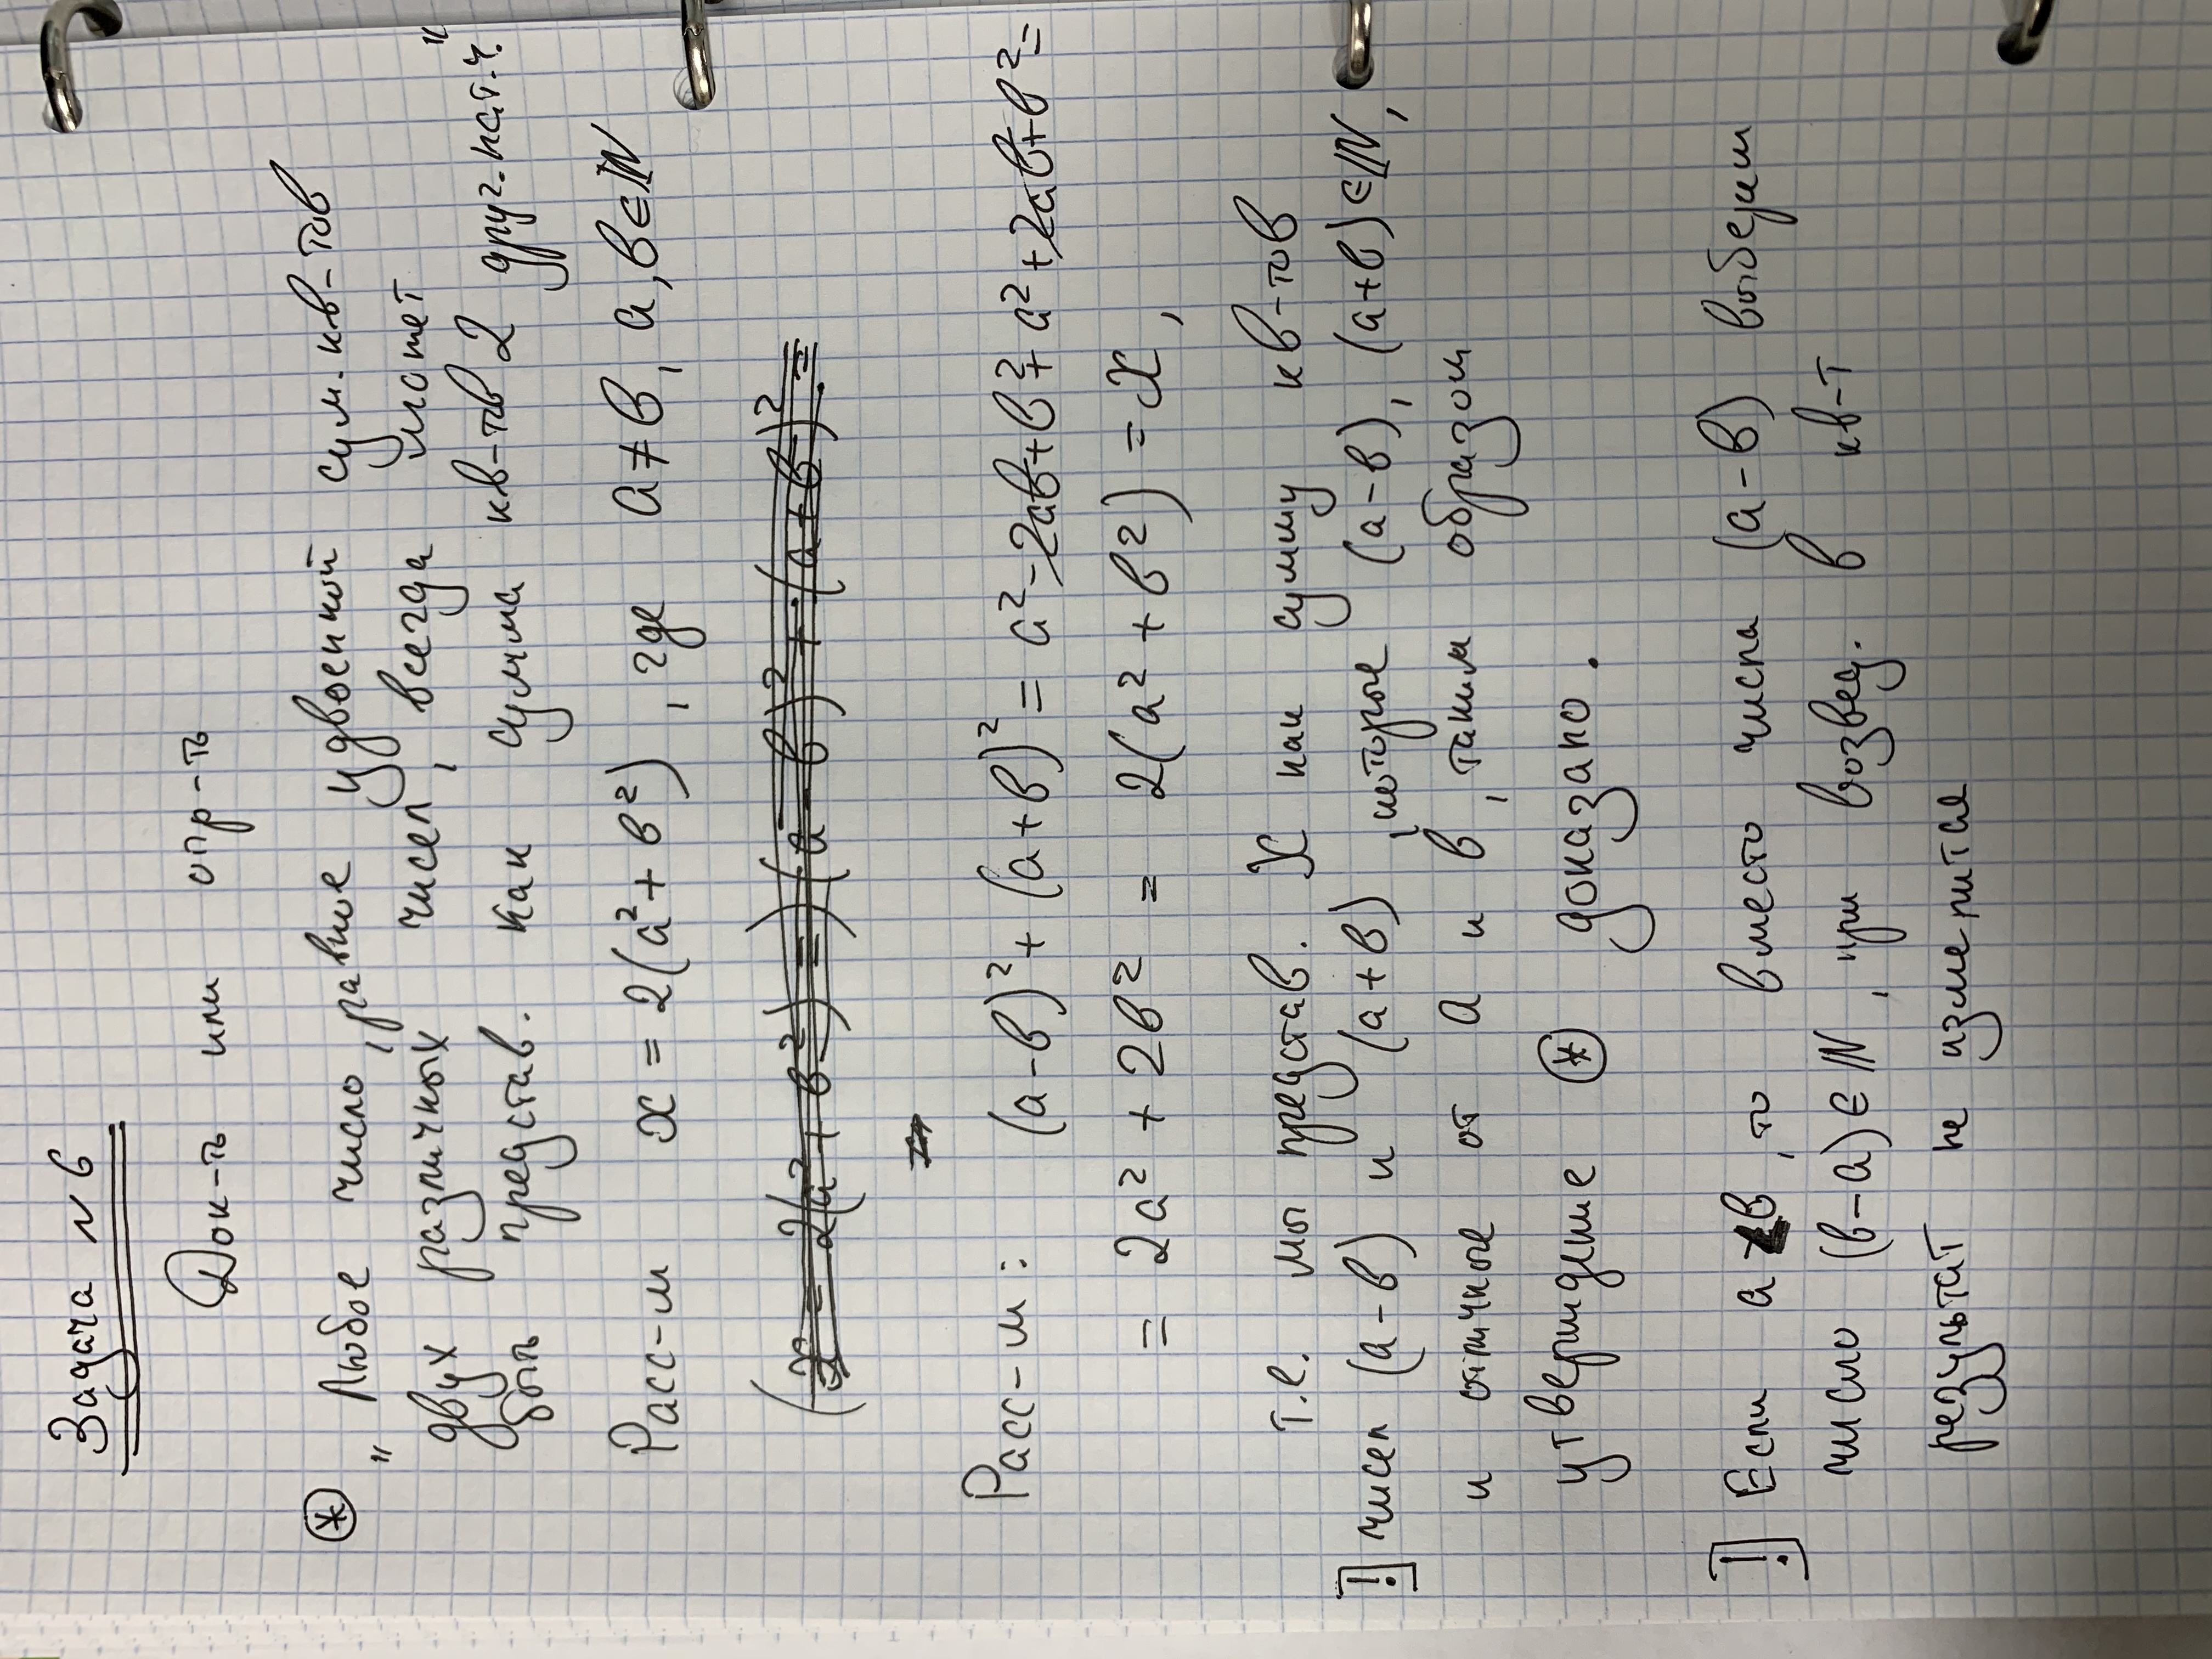 Задача №6
Док-ть или опр-ть
⊛ „Любое число, равное удвоенной сум. кв-тов
двух различных чисел, всегда может
быть представ. как сумма кв-тв 2 друг. нат. ч."
Расс-м x = 2(a² + b²), где a ≠ b, a, b ∈ ℕ
(x = 2(a² + b²) =) (a - b)² + (a + b)² =
Расс-м: (a - b)² + (a + b)² = a² - 2ab + b² + a² + 2ab + b² =
= 2a² + 2b² = 2(a² + b²) = X,
т.е. мы представ. X как сумму кв-тов
! чисел (a - b) и (a + b), которые (a - b), (a + b) ∈ ℕ,
и отличные от a и b, таким образом
утверждение ⊛ доказано.
! Если a < b, то вместо числа (a - b) выберем
число (b - a) ∈ ℕ, при возвед. в кв-т
результат не изменится